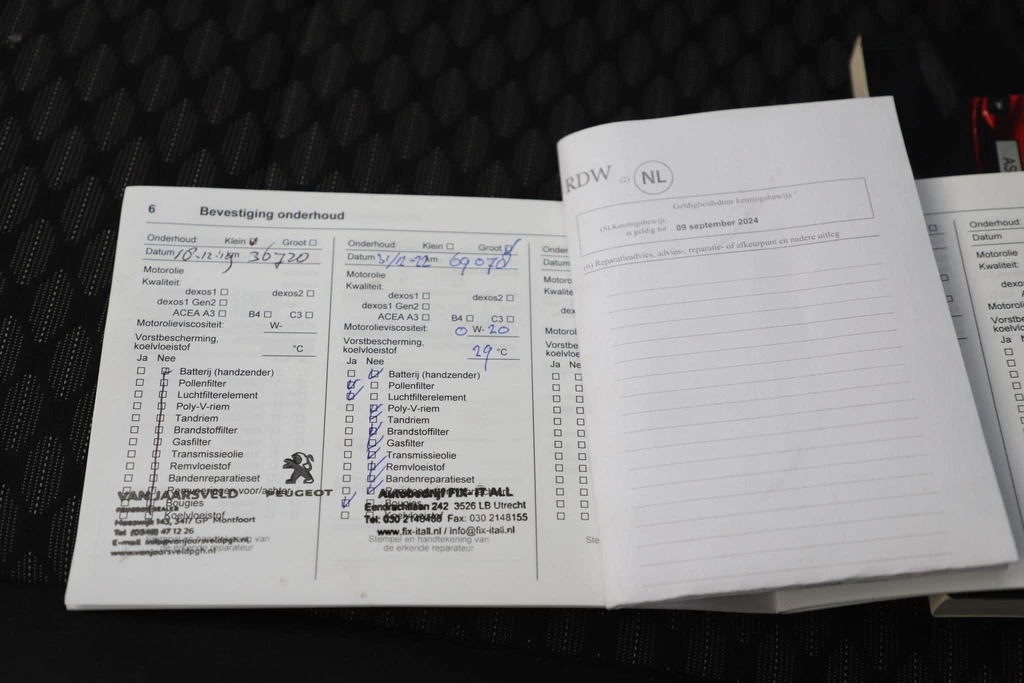 6 Bevestiging onderhoud
Onderhoud: Klein Groot
Datum 18-12-19 km 36720
Motorolie
Kwaliteit:
dexos1 dexos2
dexos1 Gen2
ACEA A3 B4 C3
Motorolieviscositeit: W-
Vorstbescherming,
koelvloeistof °C
Ja Nee
Batterij (handzender)
Pollenfilter
Luchtfilterelement
Poly-V-riem
Tandriem
Brandstoffilter
Gasfilter
Transmissieolie
Remvloeistof
Bandenreparatieset
Bougies
Koelvloeistof
VAN JAARSVELD PEUGEOT
PEUGEOT DEALER
Heeswijk 143, 3417 GP Montfoort
E-mail info@vanjaarsveldpgh.nl
www.vanjaarsveldpgh.nl
Stempel en handtekening van
de erkende reparateur
Onderhoud: Klein Groot
Datum 31/12-22 km 69078
Motorolie
Kwaliteit:
dexos1 dexos2
dexos1 Gen2
ACEA A3 B4 C3
Motorolieviscositeit: 0 W- 20
Vorstbescherming,
koelvloeistof 29 °C
Ja Nee
Batterij (handzender)
Pollenfilter
Luchtfilterelement
Poly-V-riem
Tandriem
Brandstoffilter
Gasfilter
Transmissieolie
Remvloeistof
Bandenreparatieset
Autobedrijf FIX-IT ALL
Eendrachtlaan 242 3526 LB Utrecht
Tel: 030 2148488 Fax: 030 2148155
www.fix-itall.nl / info@fix-itall.nl
Stempel en handtekening van
de erkende reparateur
Onder
Datum
Motoro
Kwalite
dex
Motorol
Vorstbe
koelvloe
Ja Ne
Ste
RDW (2) NL
Geldigheidsduur keuringsbewijs
(8) Keuringsbewijs
is geldig tot 09 september 2024
(6) Reparatieadvies, advies-, reparatie- of afkeurpunt en nadere uitleg
Onderhoud
Datum
Motorolie
Kwaliteit:
dexo
Motorol
Vorstb
koelvl
Ja
AS